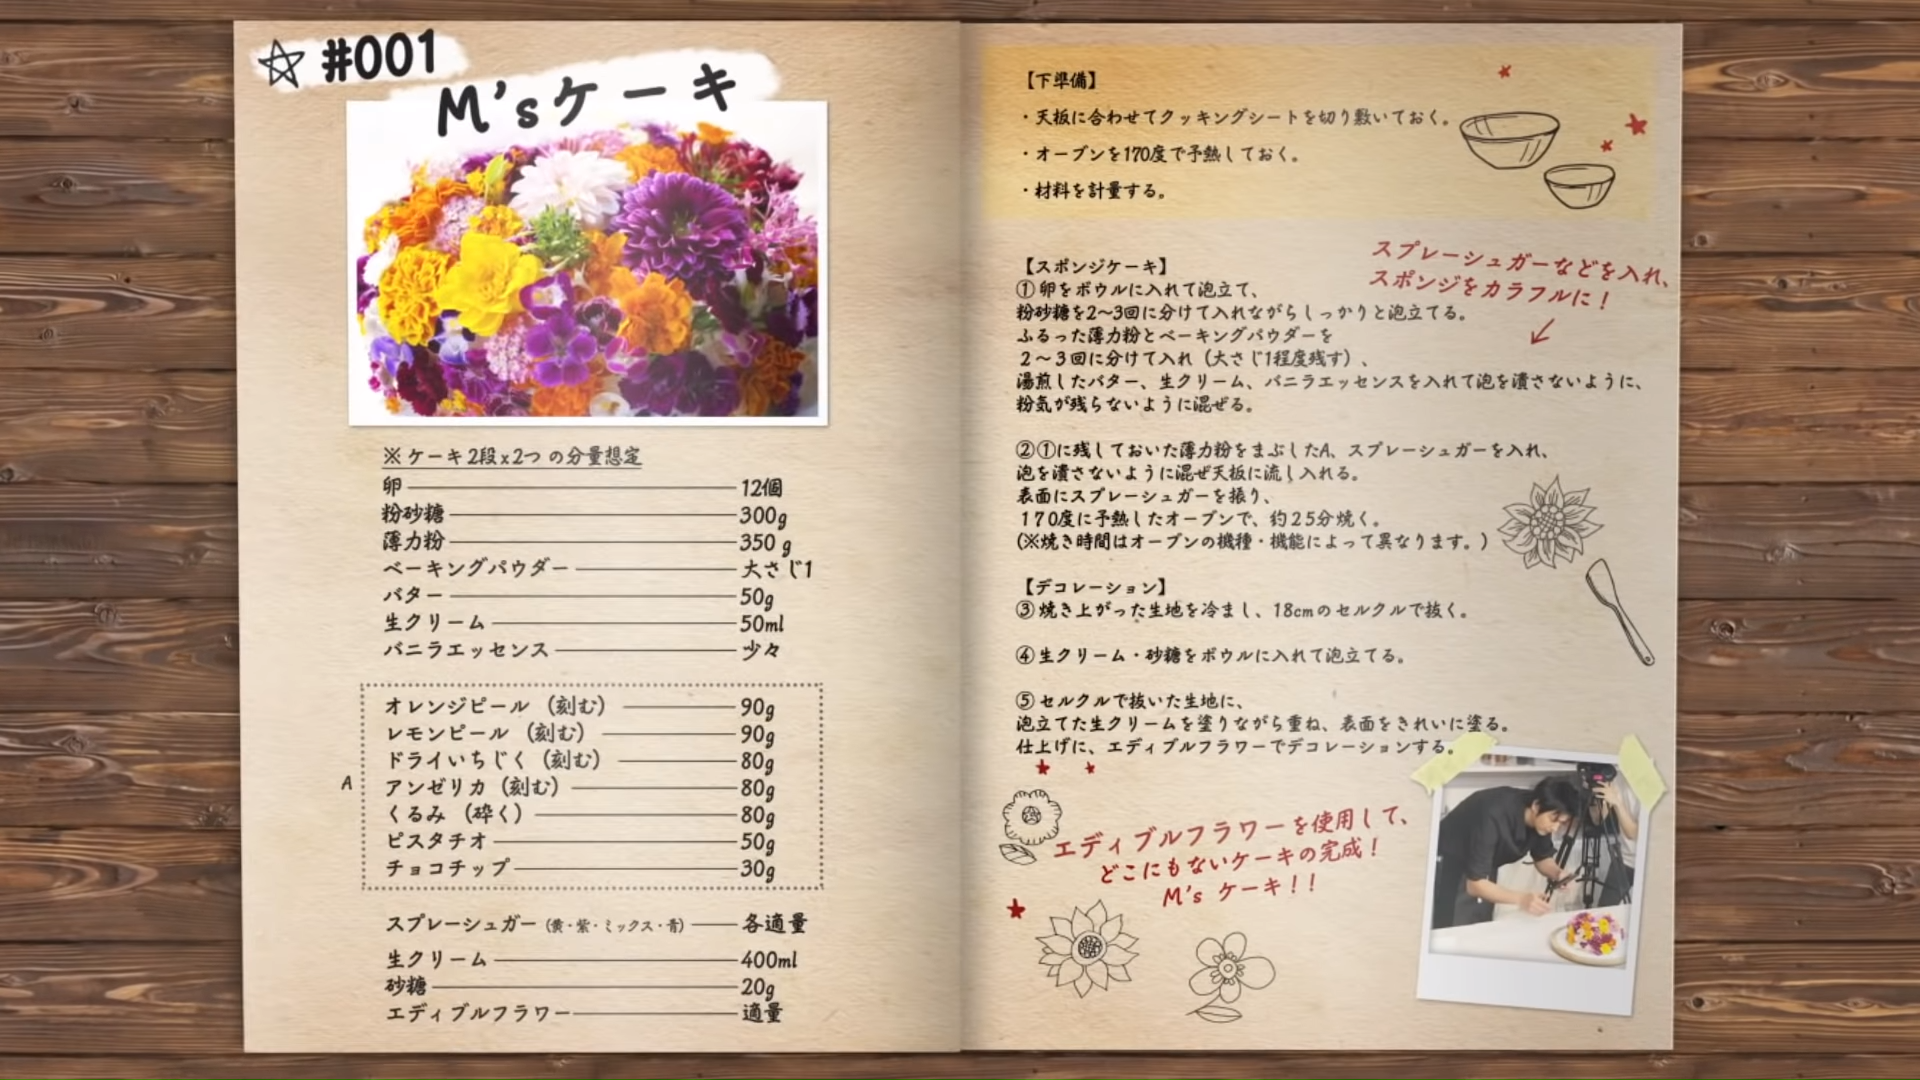 #001
M'sケーキ
※ケーキ2段x2つ の分量想定
卵 12個
粉砂糖 300g
薄力粉 350g
ベーキングパウダー 大さじ1
バター 50g
生クリーム 50ml
バニラエッセンス 少々
オレンジピール (刻む) 90g
レモンピール (刻む) 90g
ドライいちじく (刻む) 80g
A アンゼリカ (刻む) 80g
くるみ (砕く) 80g
ピスタチオ 50g
チョコチップ 30g
スプレーシュガー (黄・紫・ミックス・青) 各適量
生クリーム 400ml
砂糖 20g
エディブルフラワー 適量
【下準備】
・天板に合わせてクッキングシートを切り敷いておく。
・オーブンを170度で予熱しておく。
・材料を計量する。
スプレーシュガーなどを入れ、
スポンジをカラフルに!
【スポンジケーキ】
①卵をボウルに入れて泡立て、
粉砂糖を2〜3回に分けて入れながらしっかりと泡立てる。
ふるった薄力粉とベーキングパウダーを
2〜3回に分けて入れ(大さじ1程度残す)、
湯煎したバター、生クリーム、バニラエッセンスを入れて泡を潰さないように、
粉気が残らないように混ぜる。
②①に残しておいた薄力粉をまぶしたA、スプレーシュガーを入れ、
泡を潰さないように混ぜ天板に流し入れる。
表面にスプレーシュガーを振り、
170度に予熱したオーブンで、約25分焼く。
(※焼き時間はオーブンの機種・機能によって異なります。)
【デコレーション】
③焼き上がった生地を冷まし、18cmのセルクルで抜く。
④生クリーム・砂糖をボウルに入れて泡立てる。
⑤セルクルで抜いた生地に、
泡立てた生クリームを塗りながら重ね、表面をきれいに塗る。
仕上げに、エディブルフラワーでデコレーションする。
エディブルフラワーを使用して、
どこにもないケーキの完成!
M's ケーキ!!